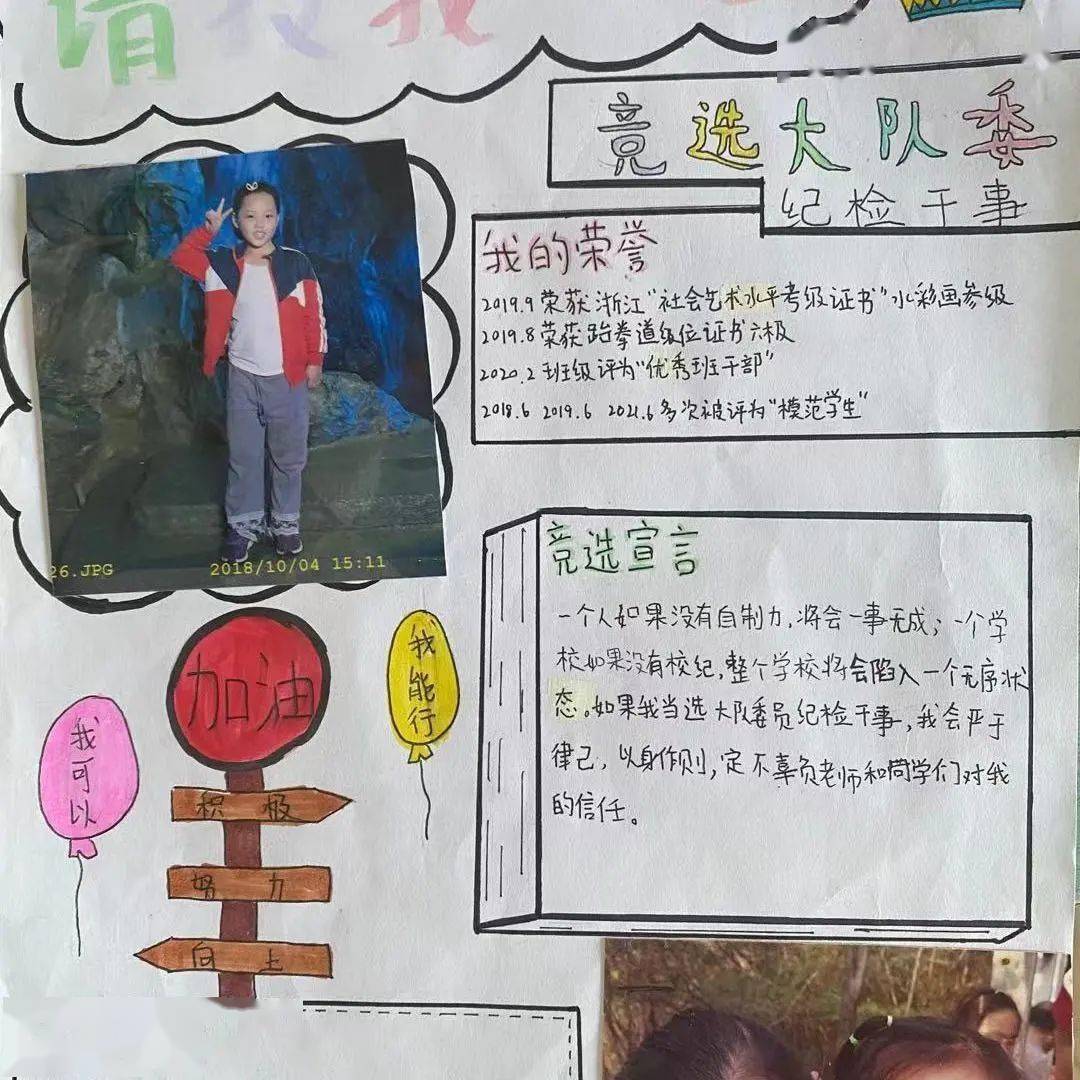 请投我一
竞选大队委
纪检干事
我的荣誉
2019.9 荣获 浙江“社会艺术水平考级证书”水彩画叁级
2019.8 荣获跆拳道级位证书六极
2020.2 班级评为“优秀班干部”
2018.6 2019.6 2021.6 多次被评为“模范学生”
26.JPG 2018/10/04 15:11
竞选宣言
一个人如果没有自制力,将会一事无成;一个学
校如果没有校纪,整个学校将会陷入一个无序状
态。如果我当选大队委员纪检干事,我会严于
律己,以身作则,定不辜负老师和同学们对我
的信任。
加油
我能行
我可以
积极
努力
向上